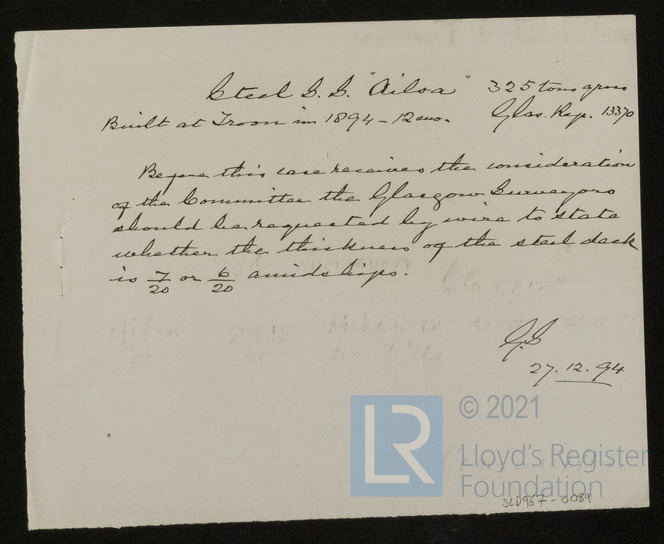 Steel S.S. "Ailsa" 325 tons gross
Built at Troon in 1894 - 12 mo. Glas. Rep. 13370
Before this case receives the consideration
of the Committee the Glasgow Surveyors
should be requested by wire to state
whether the thickness of the steel deck
is 7/20 or 6/20 amidships.
27.12.94
LR
© 2021
Lloyd's Register
Foundation